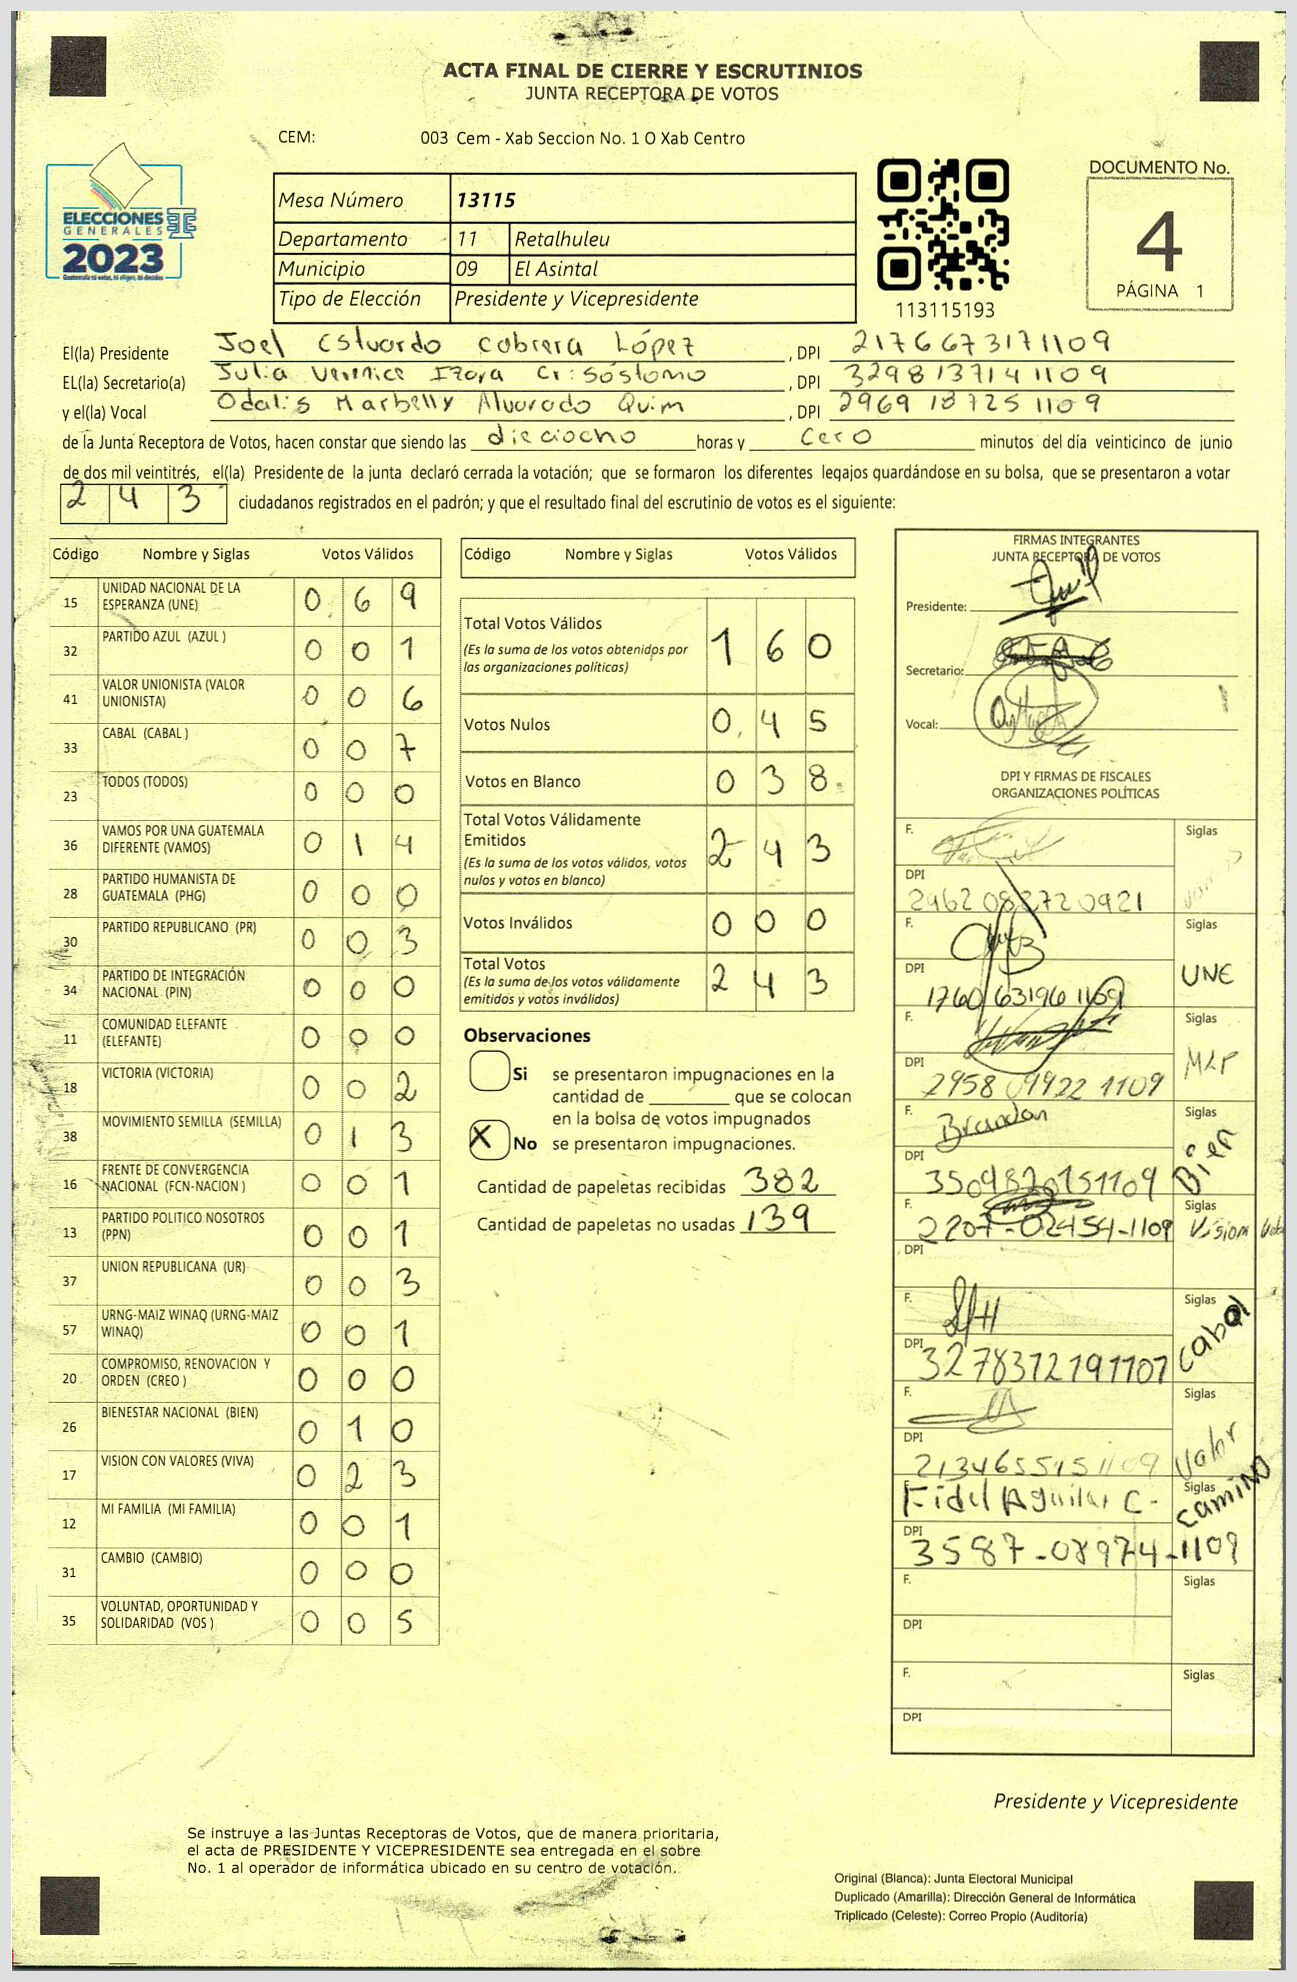 ACTA FINAL DE CIERRE Y ESCRUTINIOS
JUNTA RECEPTORA DE VOTOS
CEM: 003 Cem - Xab Seccion No. 1 O Xab Centro
ELECCIONES
GENERALES
2023
Mesa Número 13115
Departamento 11 Retalhuleu
Municipio 09 El Asintal
Tipo de Elección Presidente y Vicepresidente
113115193
DOCUMENTO No.
4
PÁGINA 1
El(la) Presidente Joel Estuardo Cabrera López, DPI 2176673171109
EL(la) Secretario(a) Julia Izara Crisóstomo, DPI 3298137141109
y el(la) Vocal Odalis Marbelly Alvarado Quim, DPI 2969187251109
de la Junta Receptora de Votos, hacen constar que siendo las dieciocho horas y cero minutos del día veinticinco de junio
de dos mil veintitrés, el(la) Presidente de la junta declaró cerrada la votación; que se formaron los diferentes legajos guardándose en su bolsa, que se presentaron a votar
243 ciudadanos registrados en el padrón; y que el resultado final del escrutinio de votos es el siguiente:
Código Nombre y Siglas Votos Válidos
15 UNIDAD NACIONAL DE LA ESPERANZA (UNE) 0 6 9
32 PARTIDO AZUL (AZUL ) 0 0 1
41 VALOR UNIONISTA (VALOR UNIONISTA) 0 0 6
33 CABAL (CABAL ) 0 0 7
23 TODOS (TODOS) 0 0 0
36 VAMOS POR UNA GUATEMALA DIFERENTE (VAMOS) 0 1 4
28 PARTIDO HUMANISTA DE GUATEMALA (PHG) 0 0 0
30 PARTIDO REPUBLICANO (PR) 0 0 3
34 PARTIDO DE INTEGRACIÓN NACIONAL (PIN) 0 0 0
11 COMUNIDAD ELEFANTE (ELEFANTE) 0 0 0
18 VICTORIA (VICTORIA) 0 0 2
38 MOVIMIENTO SEMILLA (SEMILLA) 0 1 3
16 FRENTE DE CONVERGENCIA NACIONAL (FCN-NACION ) 0 0 1
13 PARTIDO POLITICO NOSOTROS (PPN) 0 0 1
37 UNION REPUBLICANA (UR) 0 0 3
57 URNG-MAIZ WINAQ (URNG-MAIZ WINAQ) 0 0 1
20 COMPROMISO, RENOVACION Y ORDEN (CREO ) 0 0 0
26 BIENESTAR NACIONAL (BIEN) 0 1 0
17 VISION CON VALORES (VIVA) 0 2 3
12 MI FAMILIA (MI FAMILIA) 0 0 1
31 CAMBIO (CAMBIO) 0 0 0
35 VOLUNTAD, OPORTUNIDAD Y SOLIDARIDAD (VOS ) 0 0 5
Código Nombre y Siglas Votos Válidos
Total Votos Válidos 1 6 0
(Es la suma de los votos obtenidos por
las organizaciones políticas)
Votos Nulos 0 4 5
Votos en Blanco 0 3 8
Total Votos Válidamente
Emitidos 2 4 3
(Es la suma de los votos válidos, votos
nulos y votos en blanco)
Votos Inválidos 0 0 0
Total Votos 2 4 3
(Es la suma de los votos válidamente
emitidos y votos inválidos)
Observaciones
Si se presentaron impugnaciones en la
cantidad de ________ que se colocan
en la bolsa de votos impugnados
X No se presentaron impugnaciones.
Cantidad de papeletas recibidas 382
Cantidad de papeletas no usadas 139
FIRMAS INTEGRANTES
JUNTA RECEPTORA DE VOTOS
Presidente:
Secretario:
Vocal:
DPI Y FIRMAS DE FISCALES
ORGANIZACIONES POLÍTICAS
F. Siglas
DPI
F. Siglas UNE
DPI 1760 63196 1109
F. Siglas MLP
DPI 2958 09922 1109
F. Brandon Siglas Bien
DPI 3509820151109
F. Siglas Vision
2207-02454-1109
DPI
F. Siglas Cabal
DPI 3278312191107
F. Siglas Valor
DPI 2134655151109
F. Fidel Aguilar C. Siglas Camino
DPI 3587-08974-1109
F. Siglas
DPI
F. Siglas
DPI
Presidente y Vicepresidente
Se instruye a las Juntas Receptoras de Votos, que de manera prioritaria,
el acta de PRESIDENTE Y VICEPRESIDENTE sea entregada en el sobre
No. 1 al operador de informática ubicado en su centro de votación.
Original (Blanca): Junta Electoral Municipal
Duplicado (Amarilla): Dirección General de Informática
Triplicado (Celeste): Correo Propio (Auditoría)